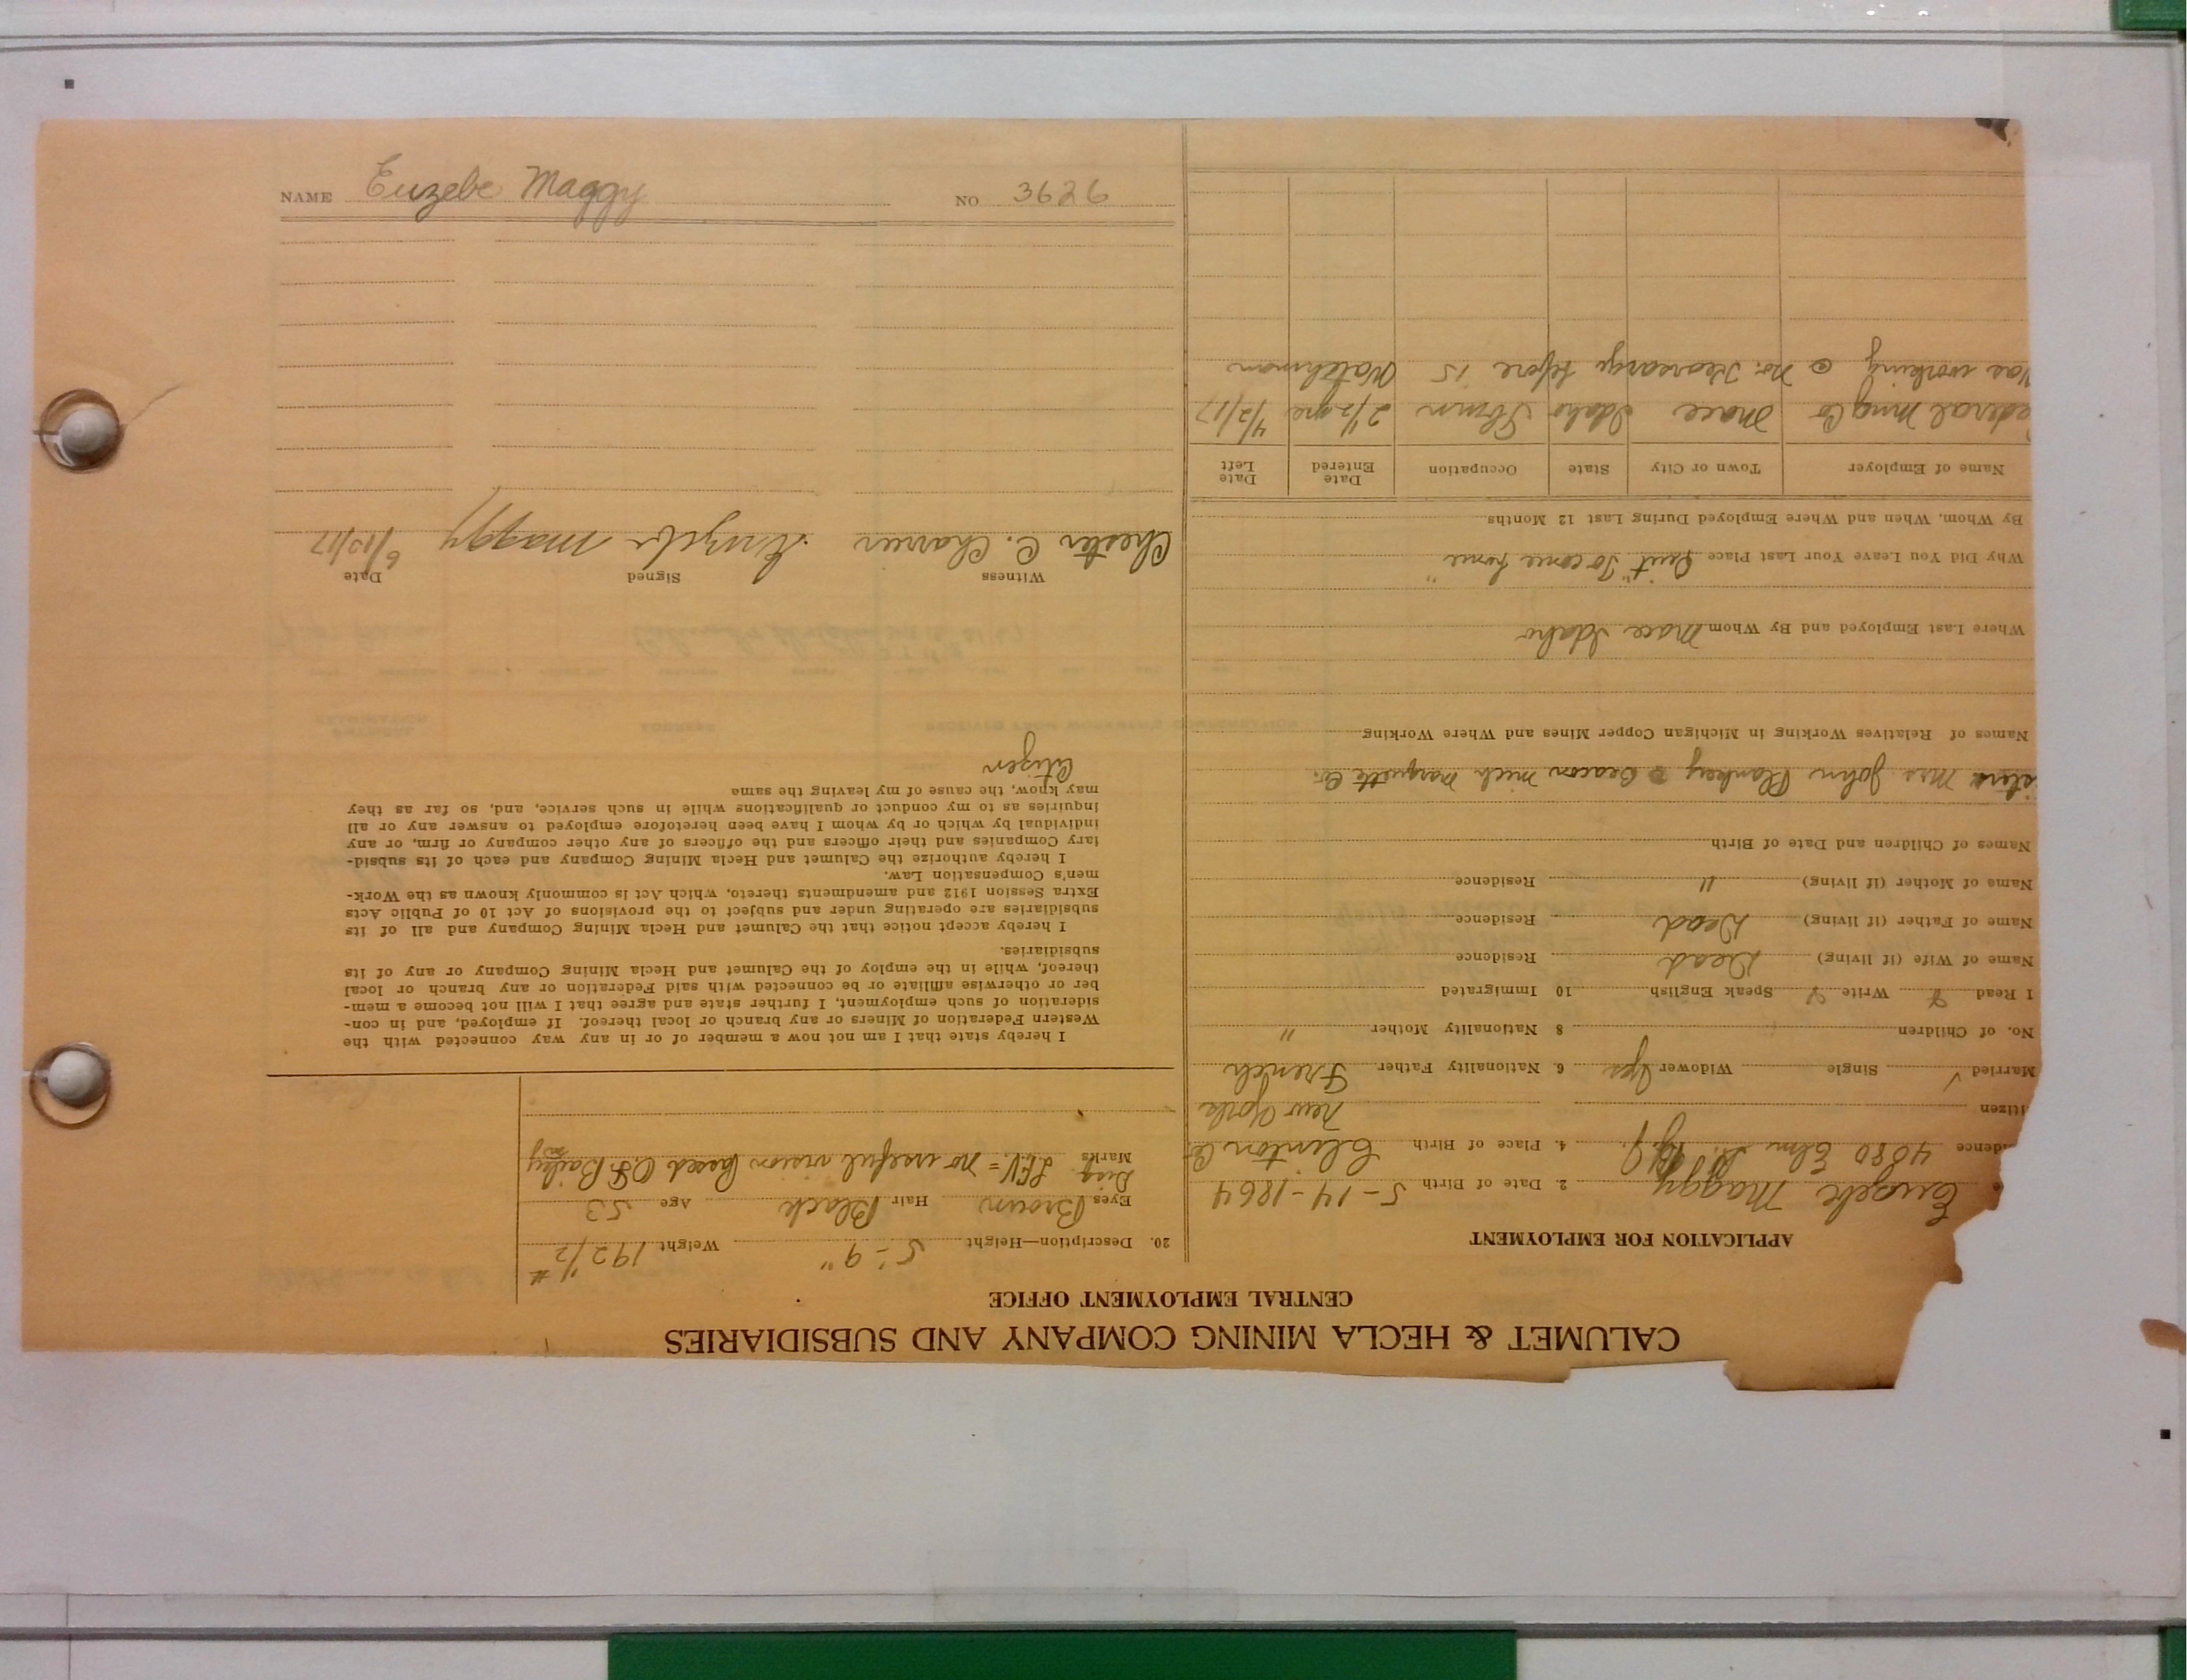 NAME Euzebe Maggy NO 3626
CALUMET & HECLA MINING COMPANY AND SUBSIDIARIES
CENTRAL EMPLOYMENT OFFICE
APPLICATION FOR EMPLOYMENT
Euzebe Maggy 2. Date of Birth 5-14-1864
idence 4080 Elm St. 4. Place of Birth Clinton Co.
itizen New York
Married Single Widower Yes 6. Nationality Father French
No. of Children 8 Nationality Mother "
I Read Write Speak English 10 Immigrated
Name of Wife (if living) Dead Residence
Name of Father (if living) Dead Residence
Name of Mother (if living) " Residence
Names of Children and Date of Birth
Mrs John Plankey @ Beacon Mich Marquette Co.
Names of Relatives Working in Michigan Copper Mines and Where Working
Where Last Employed and By Whom Mace Idaho
Why Did You Leave Your Last Place Quit "To come home"
By Whom, When and Where Employed During Last 12 Months
Name of Employer Town or City State Occupation Date Entered Date Left
ederal Ming Co Mace Idaho 2 1/2 yrs 4/2/17
Was working @ No. Kearsarge before is Watchman
20. Description—Height 5'-9" Weight 192 1/2 #
Eyes Brown Hair Black Age 53
Marks LEV = no useful vision Passed Bailey
I hereby state that I am not now a member of or in any way connected with the
Western Federation of Miners or any branch or local thereof. If employed, and in con-
sideration of such employment, I further state and agree that I will not become a mem-
ber or otherwise affiliate or be connected with said Federation or any branch or local
thereof, while in the employ of the Calumet and Hecla Mining Company or any of its
subsidiaries.
I hereby accept notice that the Calumet and Hecla Mining Company and all of its
subsidiaries are operating under and subject to the provisions of Act 10 of Public Acts
Extra Session 1912 and amendments thereto, which Act is commonly known as the Work-
men's Compensation Law.
I hereby authorize the Calumet and Hecla Mining Company and each of its subsid-
iary Companies and their officers and the officers of any other company or firm, or any
individual by which or by whom I have been heretofore employed to answer any or all
inquiries as to my conduct or qualifications while in such service, and, so far as they
may know, the cause of my leaving the same
Citizen
Witness Signed Date
Chester C. Charren Euzebe Maggy 6/13/17